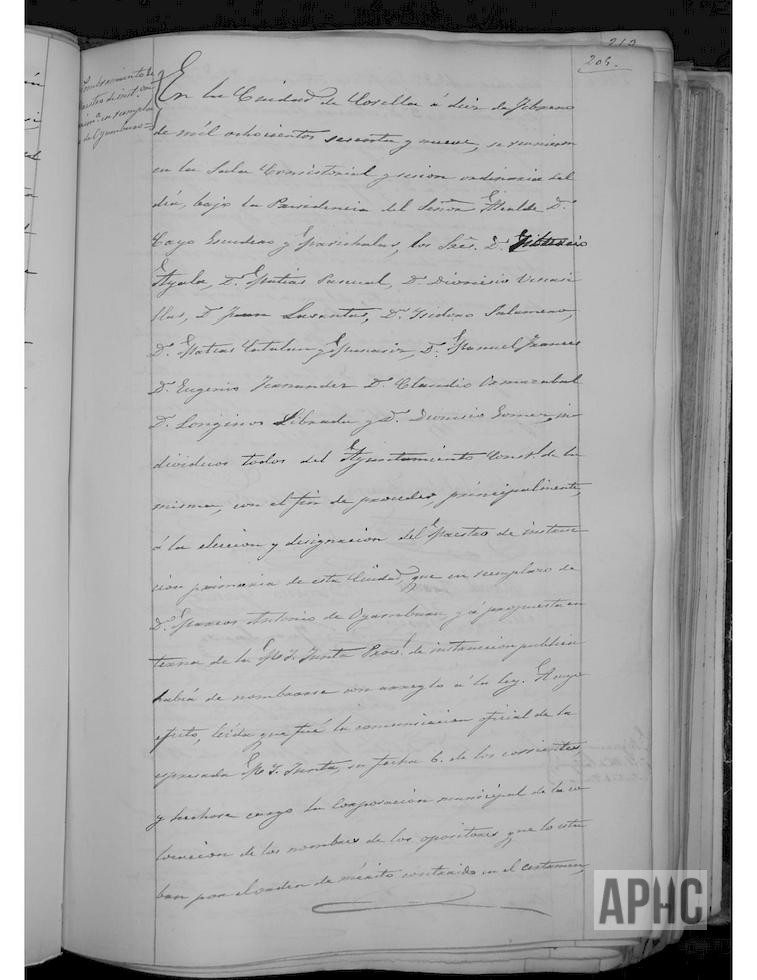 213
205.
Nombramiento de
Maestro de inst. on
prim.a en reemplazo
de Oyamburu
En la Ciudad de Corella á diez de Febrero
de mil ochocientos sesenta y nueve, se reunieron
en la Sala Consistorial y sesion ordinaria del
dia, bajo la Presidencia del Señor Alcalde D.
Cayo Escudero y Marichalar, los Sres. D.
Ayala, D. Matias Pascual, D. Dionisio
D. Juan D. Isidoro Salamero,
D. Matias Catalan y D. Manuel Frances
D. Eugenio Fernandez D. Claudio
D. Longinos Librada y D. Dionisio Gomez, in
dividuos todos del Ayuntamiento Const.l de la
misma, con el fin de proceder, principalmente,
á la eleccion y designacion del Maestro de instruc
cion primaria de esta Ciudad, que en reemplazo de
D. Marcos Antonio de Oyamburu y á propuesta en
terna de la M. I. Junta Prov.l de instruccion publica
habia de nombrarse con arreglo á la ley. A cuyo
efecto, leida que fué la comunicacion oficial de la
espresada M. I. Junta, su fecha 6. de los corrientes,
y hechose cargo la Corporacion municipal de la co
locacion de los nombres de los opositores, que lo esta
ban por el orden de mérito contraido en el certamen,
APHC